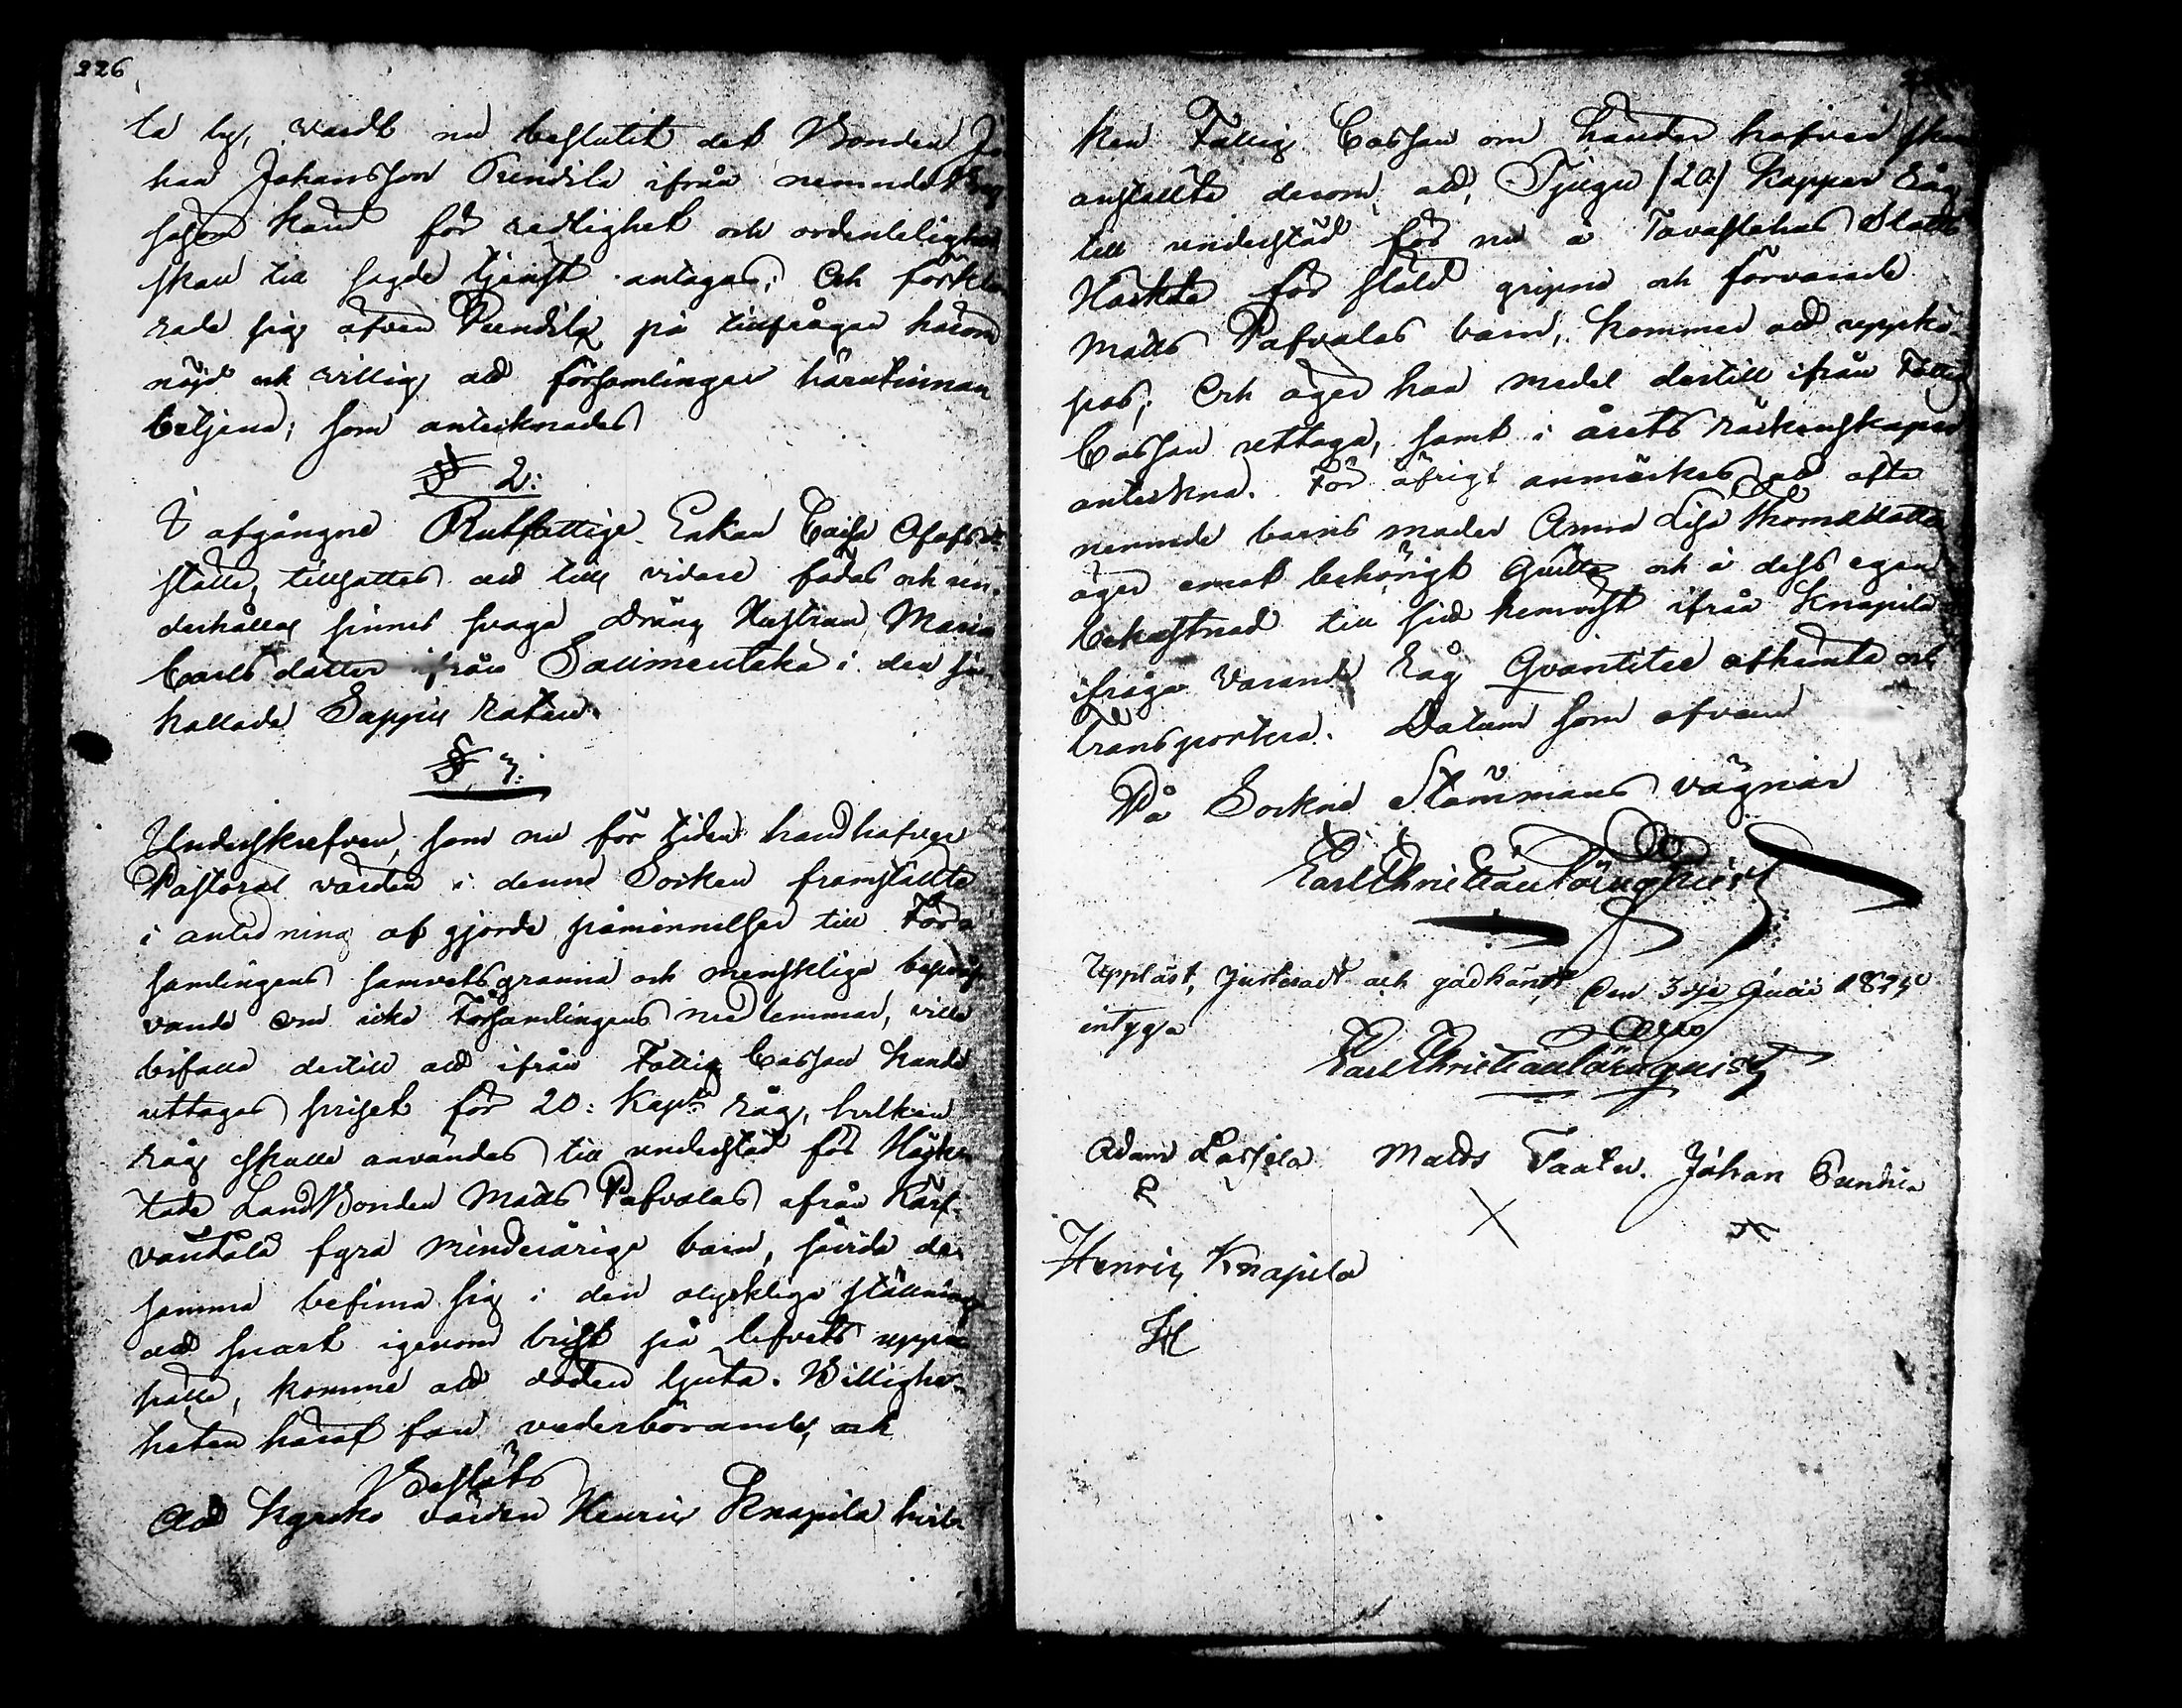 226
la by, vardt nu beslutit det Bonden Jo
han Johansson Pundila ifrån nemnde
känd för redlighet och ordentelighet
skall till sagde tjenst antagas; Och förkla
rade sig äfven Pundila på tillfrågan härom
nöjd och villig att församlingen härutinnan
betjena; som antecknades
§ 2:
I afgångne Rutfattige Enkan Caisa Olofsdr
ställe, tillsattes att tills vidare födas och un-
derhållas sinnes svaga Dräng Hustrun Maria
Carlsdotter ifrån Sallmentaka i den så
kallade Sappu Roten.
§ 3:
Underskrefven, som nu för tiden handhafver
Pastoral vården i denne Socken framställte
i anledning af gjorde påminnelser till För-
samlingens samvetsgranna och menskliga bepröf-
vande om icke Församlingens medlemmar, ville
bifalla dertill att ifrån Fattig Cassan kunde
uttagas priset för 20: Kapr Råg, hvilken
Råg skulle användas till understöd för Häck-
tade LandBonden Matts Pafvolas ifrån Kärf-
vantålå fyra minderåriga barn, såvida de-
samma befinna sig i den olyckliga ställning
att snart igenom brist på lifvets uppe
hälle, komma att döden ljuta. Billighe-
heten häraf fan vederbörande, och
Beslöts
Att Kyrko värden Henric Knapila hvil-
ken Fattig Cassan om händer hafver skall
anställa derom, att, Tjugu /20/ Kappar Råg
till understöd för nu å Tavastehus Slotts
Häckte för stöld gripne och förvarade
Matts Pafvolas barn, kommer att uppkö-
pas; Och äger han medel dertill ifrån Fattig
Cassan uttaga, samt i årets räckenskaper
anteckna. För öfrigt anmärkes att ofta
nemnde barns moder Anna Lisa Thomædotter
äger emot behörigt Quitto och å dess egen
bekostnad till sid hemvist ifrån Knapila
ifråga varande Råg Qvantitee afhemta och
transportera. Datum som ofvan
På Sockne Stämmans vägnar
Carl Christian Törnquist
Uppläst, Justeradt och godkändt, Den 3dje Junii
intygar
Carl Christian Törnquist
Adam Lassila Matds Taatu. Johan Pundila
X
Henric Knapila